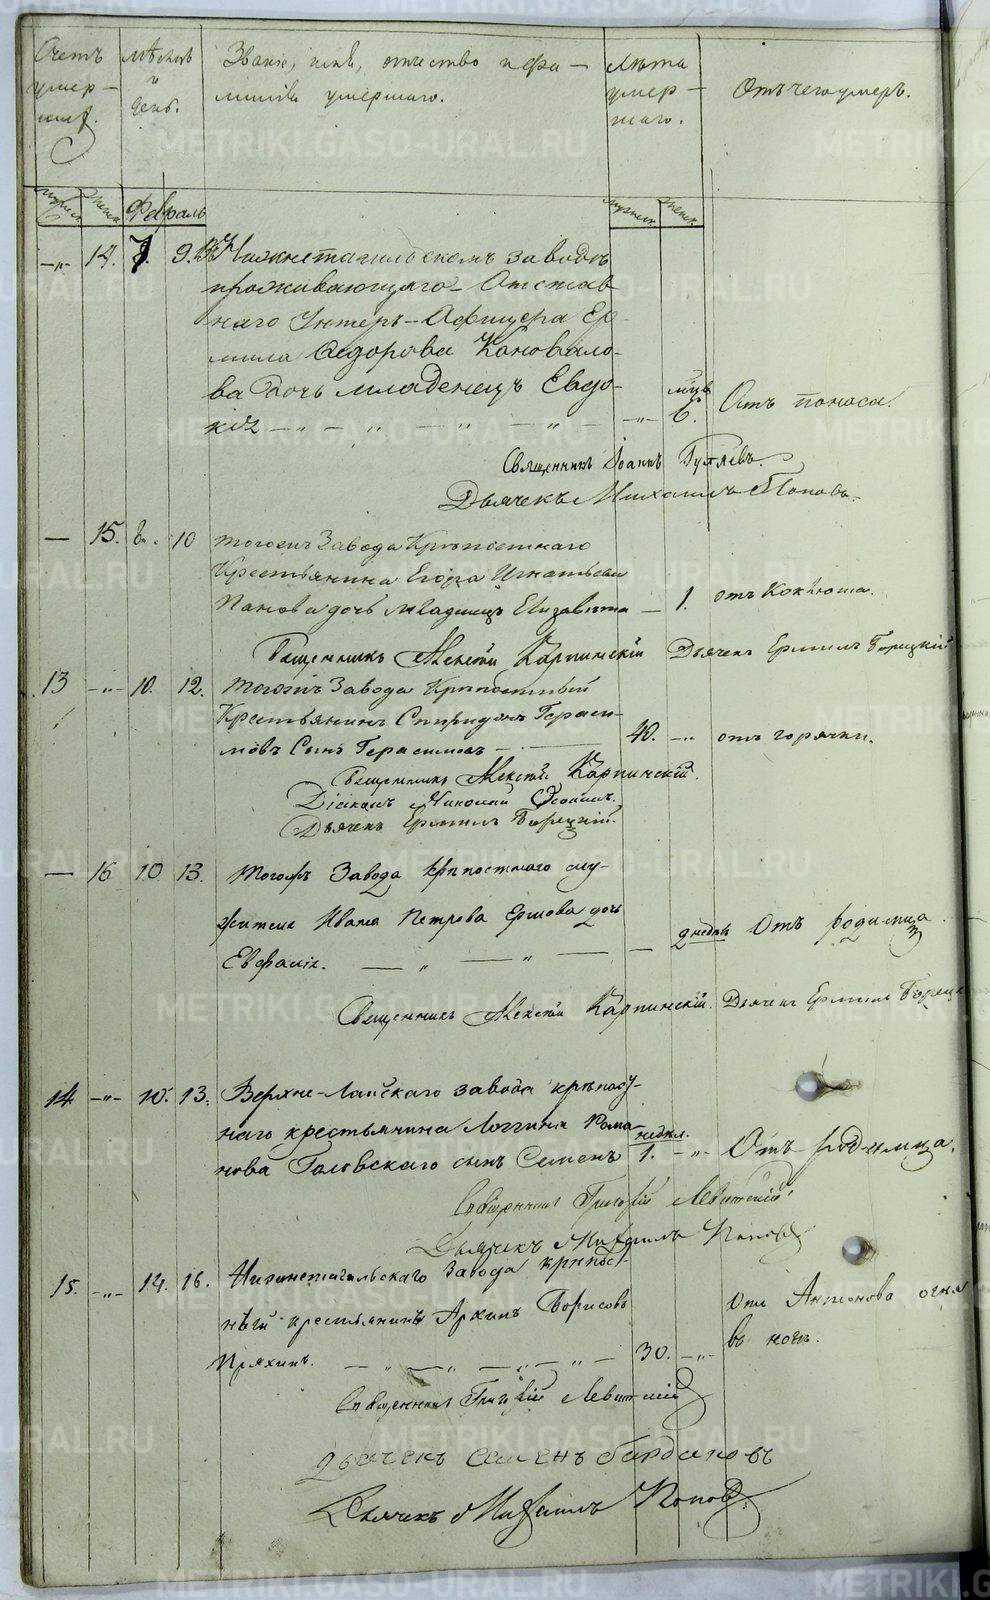 Счетъ умер-
шихъ.
Мѣсяцъ
и
день.
Званіе, имя, отчество и фа-
милія умершаго.
Лѣта
умер-
шаго.
Отъ чего умеръ.
мужеск. женск. Февраль мужеск. женск.
-„- 14. 7. 9. Въ Нижнетагильскомъ заводѣ
проживающаго Отстав
наго Унтеръ-Офицера Ер-
мила Ѳедорова Коновало-
ва дочь младенецъ Евдо-
кія -„- -„- -„- -„- -„- мцъ 6. Отъ поноса.
Священникъ Іоаннъ
Дьячекъ Михаилъ Поповъ.
— 15. 8. 10 тогожъ Завода Крѣпостнаго
Крестьянина Егора Игнатьева
Панова дочь младенецъ Елизавета — 1. отъ Коклюша.
Священникъ Алексѣй Карпинскій Дьячекъ Ермилъ Борецкій
13 -„- 10. 12. тогожъ Завода Крѣпостный
Крестьянинъ Спиридонъ Гераси-
мовъ Сынъ Герасимовъ — 40. -„- отъ горячки.
Священникъ Алексѣй Карпинскій.
Діаконъ Николай
Дьячекъ Ермилъ Борецкій.
— 16 10 13. Тогожъ Завода крѣпостнаго слу-
жителя Ивана Петрова Ершова дочь
Евфанія. — „ — „ — — 2 недѣл. Отъ родимца.
Священникъ Алексѣй Карпинскій. Дьячекъ Ермилъ Борецк
14 -„- 10. 13. Верхне-Лайскаго завода крѣпост-
наго крестьянина Логгина Рома-
нова Головскаго сынъ Семенъ недѣл. 1. -„- Отъ родимца.
Священникъ Григорій Левитскій.
Дьячекъ Михаилъ Поповъ
15. -„- 14. 16. Нижнетагильскаго Завода крѣпост-
ный крестьянинъ Архипъ Борисовъ
Пряхинъ. — „ — „ — „ — „ — 30. -„- Отъ Антонова огня
въ ногѣ.
Священникъ Григорій Левитскій
Дьячекъ Семенъ Бардаковъ
Дьячекъ Михаилъ Поповъ.
METRIKI.GASO-URAL.RU